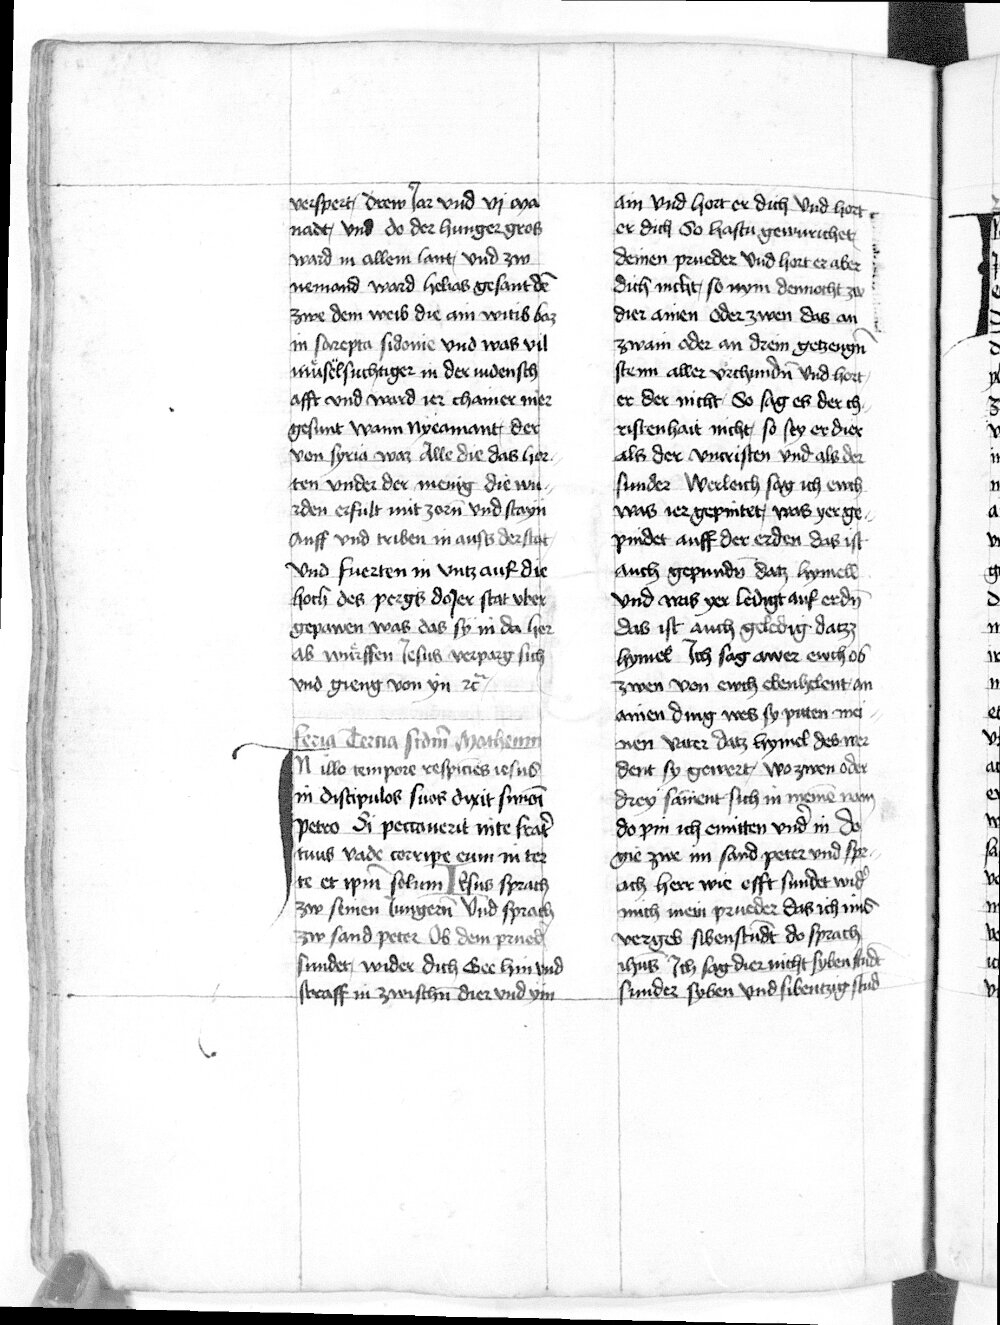 verspert / drew Jar vnd vj ma
nadt / vnd do der hunger gros
ward in allem lant / vnd zw
niemand ward helias gesant dē
zwe dem weib die ain witib baz
in sarepta sidonie vnd was vil
müsëlsuchtiger in der iudensch
afft vnd ward ier chainer nier
gesunt wann nyeamant der
von syria waz Alle die das hor
ten vnder der menig die wu-
rden erfult mit zorn̄ vnd stayn
Auff vnd triben in auss der stat
Vnd fuerten in vntz auf die
hoch des pergs do Jer stat vber
gepawen was das sy in da her
ab würffen Jesus verparg sich
vnd gieng von yn rc̄
feria Tercia scdm̄ Matheum
IN illo tempore respiciēs iesus
in discipulos suos dixit simōi
petro Si peccauerit in te frat̄
tuus vade corripe eum in ter
te et ip̄m solum Iesus sprach
zw seinen Jungern̄ Vnd sprach
zw sand peter Ob dein prued̄
sundet / wider dich Gee hin vnd
straff in zwischn̄ dier vnd ym
ain vnd hort er dich Vnd hort
er dich So hastu gewurichet
deinen prueder Vnd hort er aber
dich nicht / so nym dennocht zw
dier ainen oder zwen das an
zwain oder an drein getzeugn̄
ste in aller vrchundn̄ Vnd hort
er der nicht So sag es der ch-
ristenhait nicht / so sey er dier
als der vncristen vnd als der
sunder Werleich sag ich ewch
was ier gepintet / was yer ge-
pindet auff der erden das ist
auch gepundn̄ datz hymell
vnd was yer ledigt auf erdn̄
das ist auch geledig datzz
hymel Ich sag awer ewch ob
zwen von ewch ebenhelent an
ainen ding wes sy piten mei-
nen vater datz hymel des wer
dent sy gewert / wo zwen oder
drey sāment sich in meinē nam
do pin ich emitten vnd̄ in Do
gie zwe im sand peter vnd spr-
ach herr wie offt sundet wid̄
mich mein prueder das ich ims
vergeb sibenstūdt do sprach
ihūs Ich sag dier nicht syben stūdt
sunder syben vnd sibentzig stud